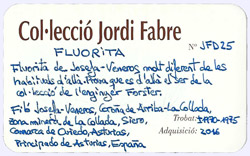 Col·lecció Jordi Fabre
FLUORITA
Nº JFD25
Fluorita de Josefa-Veneros molt diferent de les
habituals d'allà. Prova que és d'allà el ser de la
col·lecció de l'enginyer Forster.
Filó Josefa-Veneros, Grona de Arriba-La Collada,
zona minera de La Collada, Siero,
Comarca de Oviedo, Asturias,
Principado de Asturias, España
Trobat: 1970-1975
Adquisició: 2016